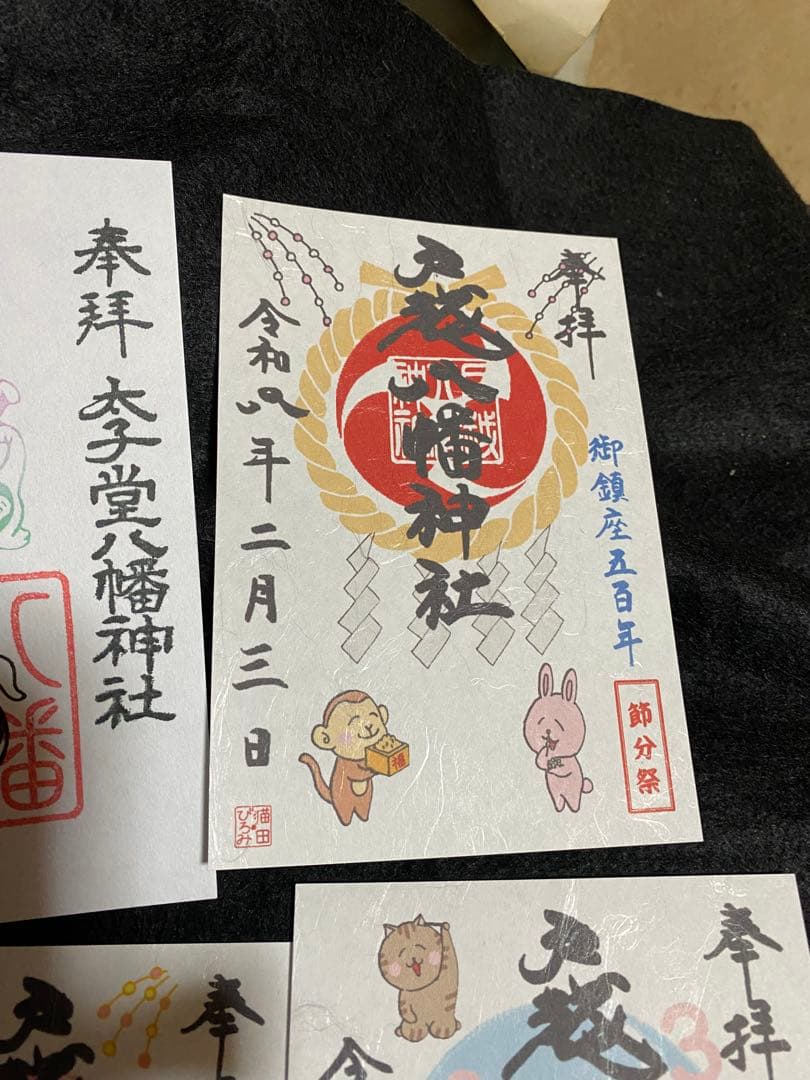 奉拝
太子堂八幡神社
八幡
奉拝
戸越八幡神社
令和八年二月三日
御鎮座五百年
節分祭
福
猫田
びろみ
奉拝
戸越
令
3
奉
戸越